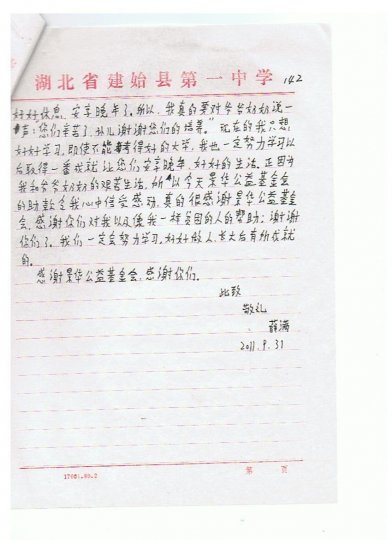 湖北省建始县第一中学
142
好好休息，安享晚年了。所以，我真的要对爷爷奶奶说一
声：“您们辛苦了，孙儿谢谢您们的培养。”现在的我只想
好好学习，即使不能考得好的大学，我也一定努力学习以
后取得一番成就，让您们安享晚年，好好的生活。正因为
我和爷爷奶奶的艰苦生活，所以今天昊华公益基金会
的助款令我心中倍受感动，真的很感谢昊华公益基金
会，感谢你们对我以及像我一样贫困的人的帮助；谢谢
你们了。我们一定会努力学习，好好做人，长大后有所成就
的。
感谢昊华公益基金会，感谢你们。
此致
敬礼
薛满
2011.9.31
17061.80.2
第 页